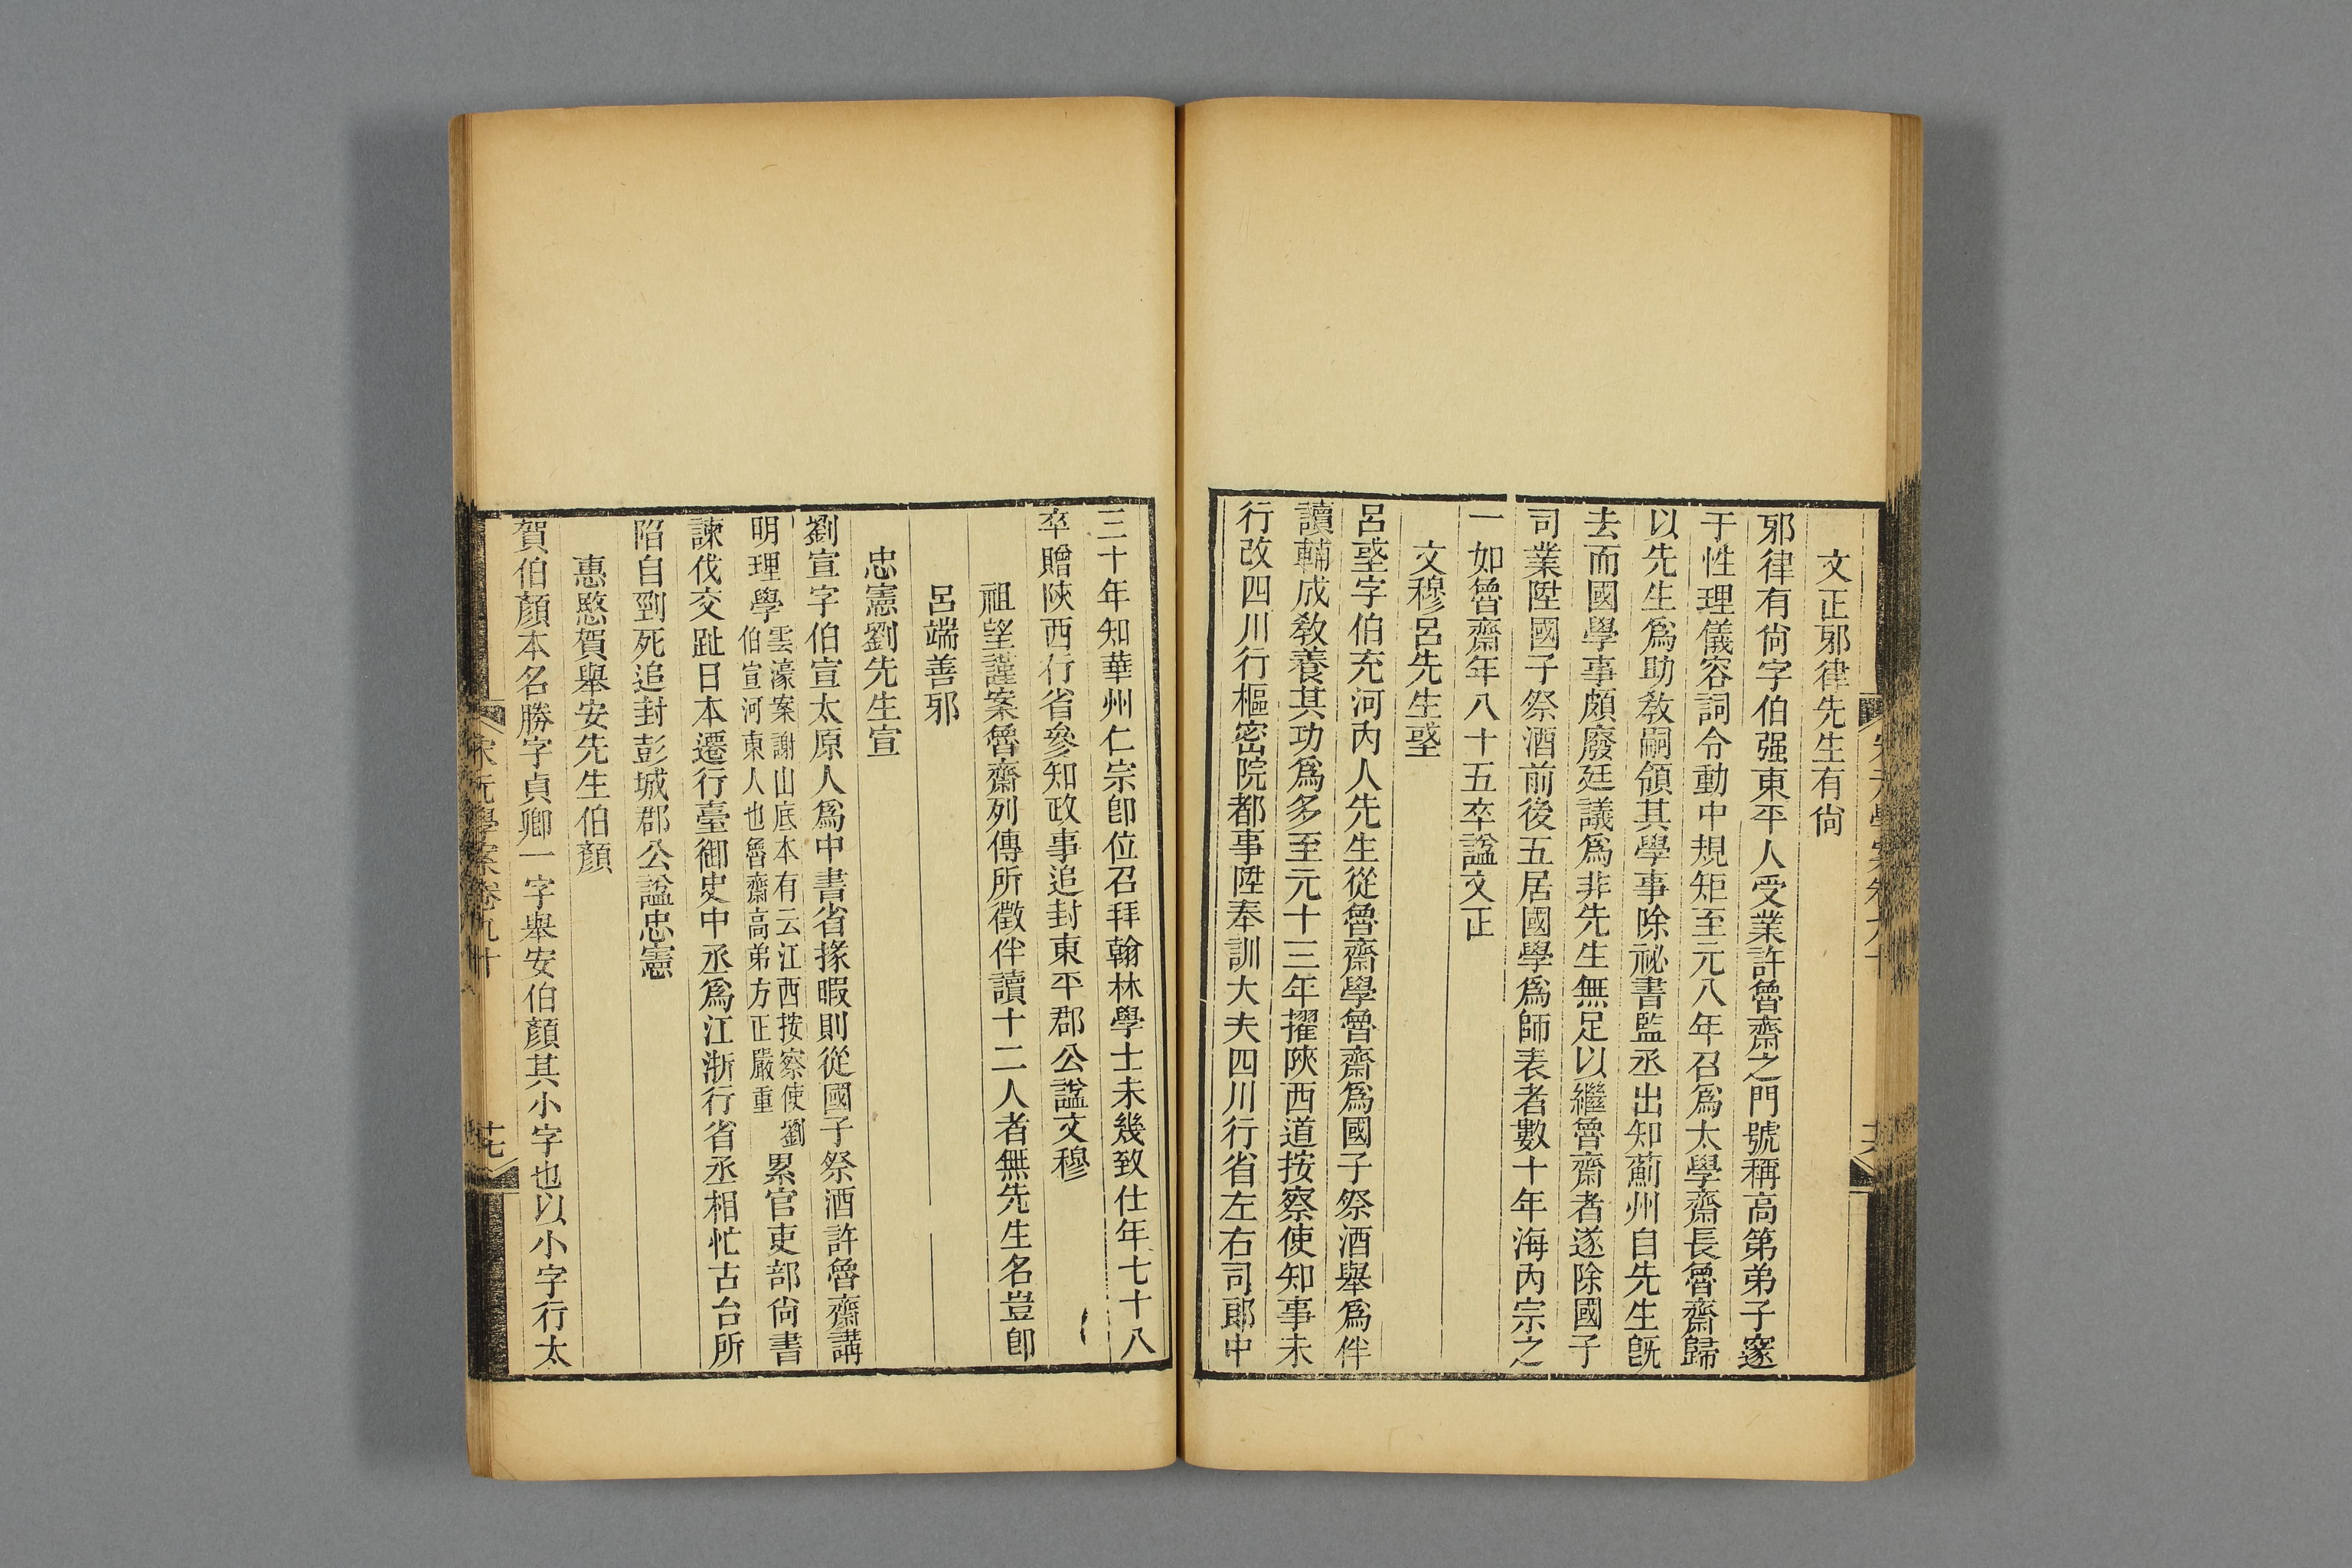 文正邪律先生有尙
邪律有尙字伯强東平人受業許魯齋之門號稱高第弟子邃
于性理儀容詞令動中規矩至元八年召爲太學齋長魯齋歸
以先生爲助敎嗣領其學事除祕書監丞出知薊州自先生旣
去而國學事頗廢廷議爲非先生無足以繼魯齋者遂除國子
司業陞國子祭酒前後五居國學爲師表者數十年海內宗之
一如魯齋年八十五卒諡文正
文穆呂先生坖
呂坖字伯充河內人先生從魯齋學魯齋爲國子祭酒舉爲伴
讀輔成敎養其功爲多至元十三年擢陝西道按察使知事未
行改四川行樞密院都事陞奉訓大夫四川行省左右司郎中
三十年知華州仁宗卽位召拜翰林學士未幾致仕年七十八
卒贈陝西行省參知政事追封東平郡公諡文穆
祖望謹案魯齋列傳所徵伴讀十二人者無先生名豈卽
呂端善邪
忠憲劉先生宣
劉宣字伯宣太原人爲中書省掾暇則從國子祭酒許魯齋講
明理學雲濠案謝山底本有云江西按察使劉伯宣河東人也魯齋高弟方正嚴重累官吏部尙書
諫伐交趾日本遷行臺御史中丞爲江浙行省丞相忙古台所
陷自剄死追封彭城郡公諡忠憲
惠愍賀舉安先生伯顏
賀伯顏本名勝字貞卿一字舉安伯顏其小字也以小字行太
宋元學案卷九十
十七